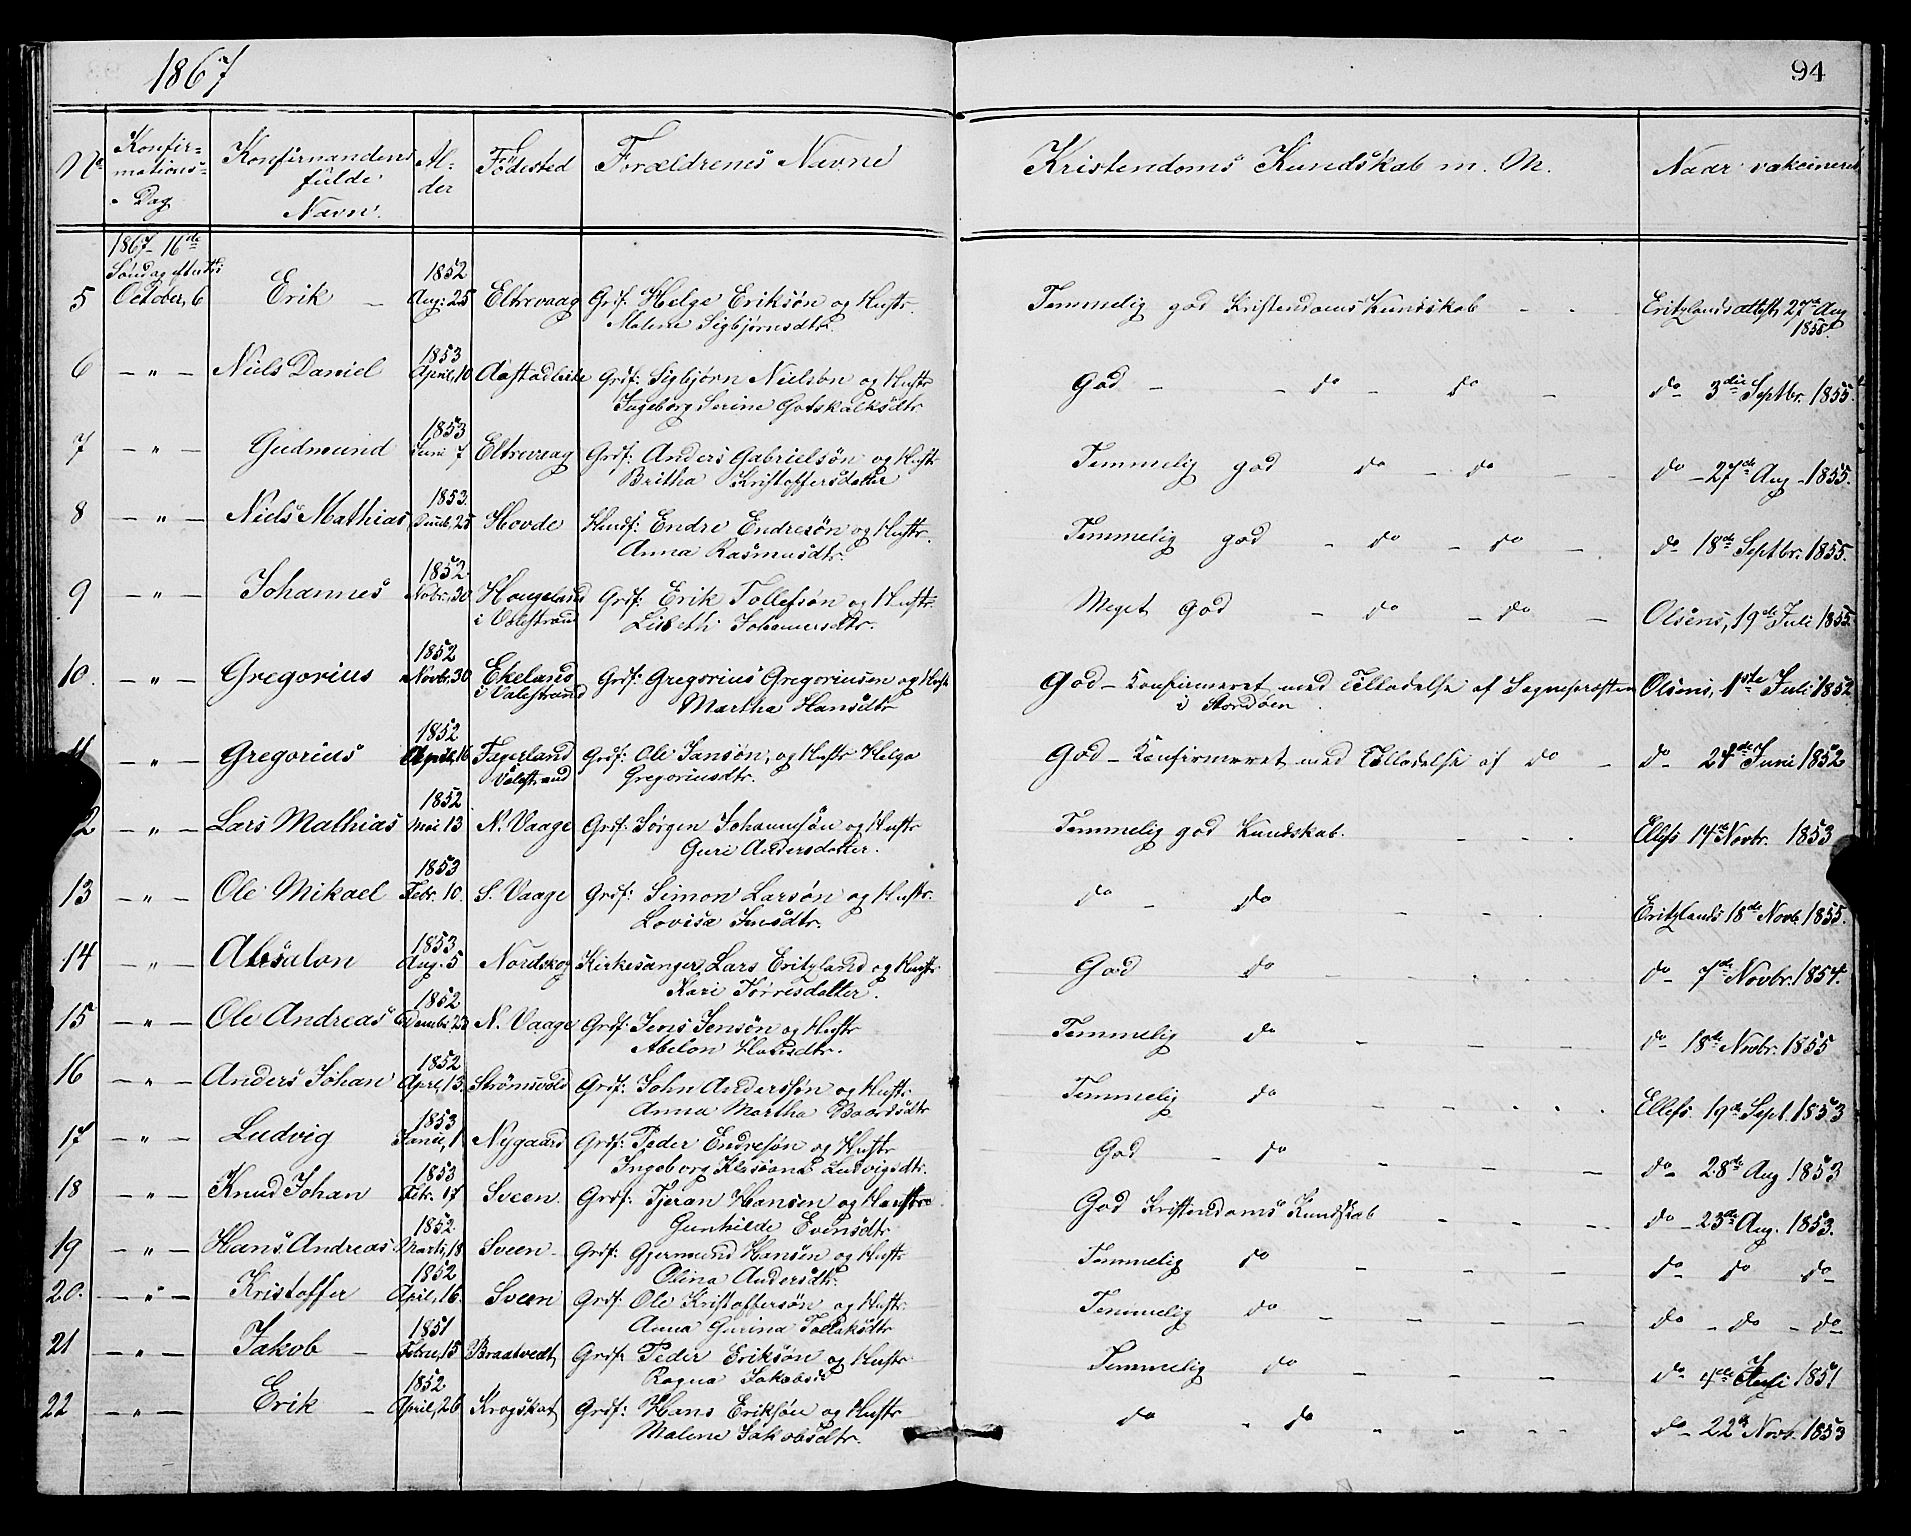 1867
94
No Konfirmations-Dag Konfirmandens fulde Navne. Alder Födested Forældrenes Navne Kristendoms Kundskab m. M. Naar vakcineret
1867 16de Söndag efter
5 October, 6 Erik 1852 Aug: 25 Eltrevaag Grdf. Helge Eriksøn og Hustr. Temmelig god Kristendoms Kundskab Eritzlands attest, 27de Aug
Malene Sigbjørnsdtr. 1855
6 — " — Niels Daniel 1853 April, 10 Grdf: Sigbjørn Nielsøn og Hustr God — do — do — do 3die Septbr. 1855.
Ingeborg Serine Gotskalksdtr
7 — " — Gudmund 1853 Juni 7 Eltrevaag Grdf: Anders Gabrielsøn og Hustr Temmelig god do — do — do — 27de Aug — 1855.
Britha Kristoffersdatter
8 — " — Niels Mathias, 1853. 25 Hovde Husf: Endre Endresøn og Hustr. Temmelig god — do — do — do 18de Septbr. 1855.
Anna Rasmusdtr.
9 — " — Johannes 1852. Nobr. 30 Haugeland Grdf: Erik Tollefsøn og Hustr. Meget God — do — do — Olsens, 19de Juli 1855.
i Valestrand Lisbeth Johannesdtr.
10. — " — Gregorius 1852 Novbr. 30 Ekeland Grdf: Gregorius Gregoriusen og Hustr God — Konfirmeret med Tilladelse af Sogneprästen Olsens, 1ste Juli 1852
i Valestrand Martha Hansdtr i Stordöen.
11 — " — Gregorius 1852 April, 16 Fagerland Grdf: Ole Jansøn, og Hustr Helga God — Konfirmeret med Tilladelse af do — do 24de Juni 1852
Valestrand Gregoriusdtr.
2 — " — Lars Mathias 1852 Mai 13 N. Vaage Grdf: Jörgen Johannesøn og Hustr Temmelig god Kundskab. Ellefs 14de Novbr. 1853
Guri Andersdatter.
13 — " — Ole Mikael 1853 Febr. 10. S. Vaage Grdf: Simon Larsøn og Hustr. do — do Eritzlands 18de Novb. 1855.
Lovise Jensdtr.
14 — " — Absalon 1853 Aug. 5 Nordskog Kirkesanger, Lars Eritzland og Hustr. God do do 7de Novbr. 1854.
Kari Törresdatter.
15 — " — Ole Andreas 1852 23 N. Vaage Grdf: Jens Jensøn og Hustr Temmelig do do 18de Novbr. 1855
Abelon Hansdtr.
16 — " — Anders Johan 1852 April, 13. Strömsvold Grdf: John Anderssøn og Hustr. Temmelig do Ellefs. 19de Sept. 1853
Anna Martha Baardsdtr
17 — " — Ludvig 1853 Janu, 1 Nygaard Grdf: Peder Endresøn og Hustr God — do do 28de Aug 1853
Ingeborg Ludvigsdtr.
18 — " — Knud Johan 1853 Febr. 17. Sveen. Grdf: Tjeran Hansen og Hustru God Kristendoms Kundskab do — 23de Aug. 1853.
Gunhilde Evensdtr
19 — " — Hans Andreas 1852. Marts, 18 Sveen Grdf: Gjermund Hansen og Hustr Temmelig do do do do
Olina Andersdtr.
20. — " — Kristoffer 1852 April, 16. Sveen Grdf: Ole Kristoffersøn og Hustr. Temmelig do do — do — do
Anna Gurina Tollaksdtr
21 — " — Jakob 1851 Febru, 15 Braatvedt, Grdf: Peder Eriksøn og Hustr. Temmelig do do 4de Juli 1851
Ragna Jakobsd
22 — " — Erik 1852. April, 26 Krogskat Grdf: Hans Eriksøn og Hustr do — do do 22de Novb. 1853
Malene Jakobsdtr.